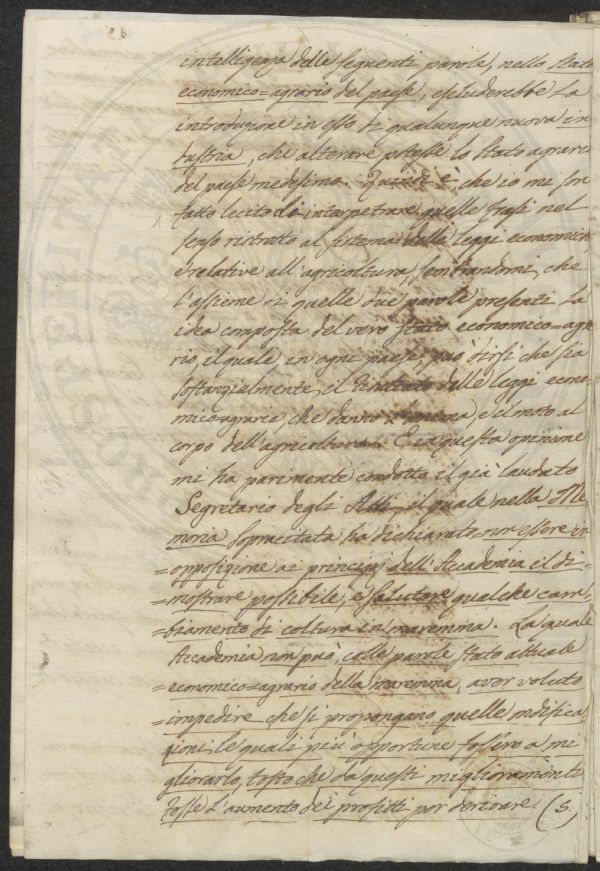 intelligenza delle seguenti parole, nello stato
economico=agrario del paese, escluderebbe la
introduzione in esso di qualunque nuova in
dustria, che alterare potesse lo stato agrario
del paese medesimo. Quindi è, che io mi son
fatto lecito di interpretrare quelle frasi nel
senso ristretto al sistema delle leggi economiche
e relative all'agricoltura, sembrandomi, che
l'assieme di quelle due parole presenti la
idea composta del vero stato economico=agra
rio, il quale in ogni paese, può dirsi che sia
sostanzialmente, il risultato delle leggi econo
mico=agrarie, che danno anima, e il moto al
corpo dell'agricoltura. E in questa opinione
mi ha parimente condotto il già laudato
Segretario degli Atti, il quale nella Me
moria sopracitata ha dichiarato non essere in
=opposizione ai principj dell'Accademia il di=
=mostrare possibile, e salutare qualche cam=
=biamento di coltura in maremma. La quale
Accademia non può, colle parole stato attuale
=economico=agrario della maremma, aver voluto
=impedire, che si propongano quelle modifica
zioni le quali più opportune fossero a mi
gliorarlo, tosto che da questi miglioramenti
fosse l'aumento dei profitti per derivare. (5)